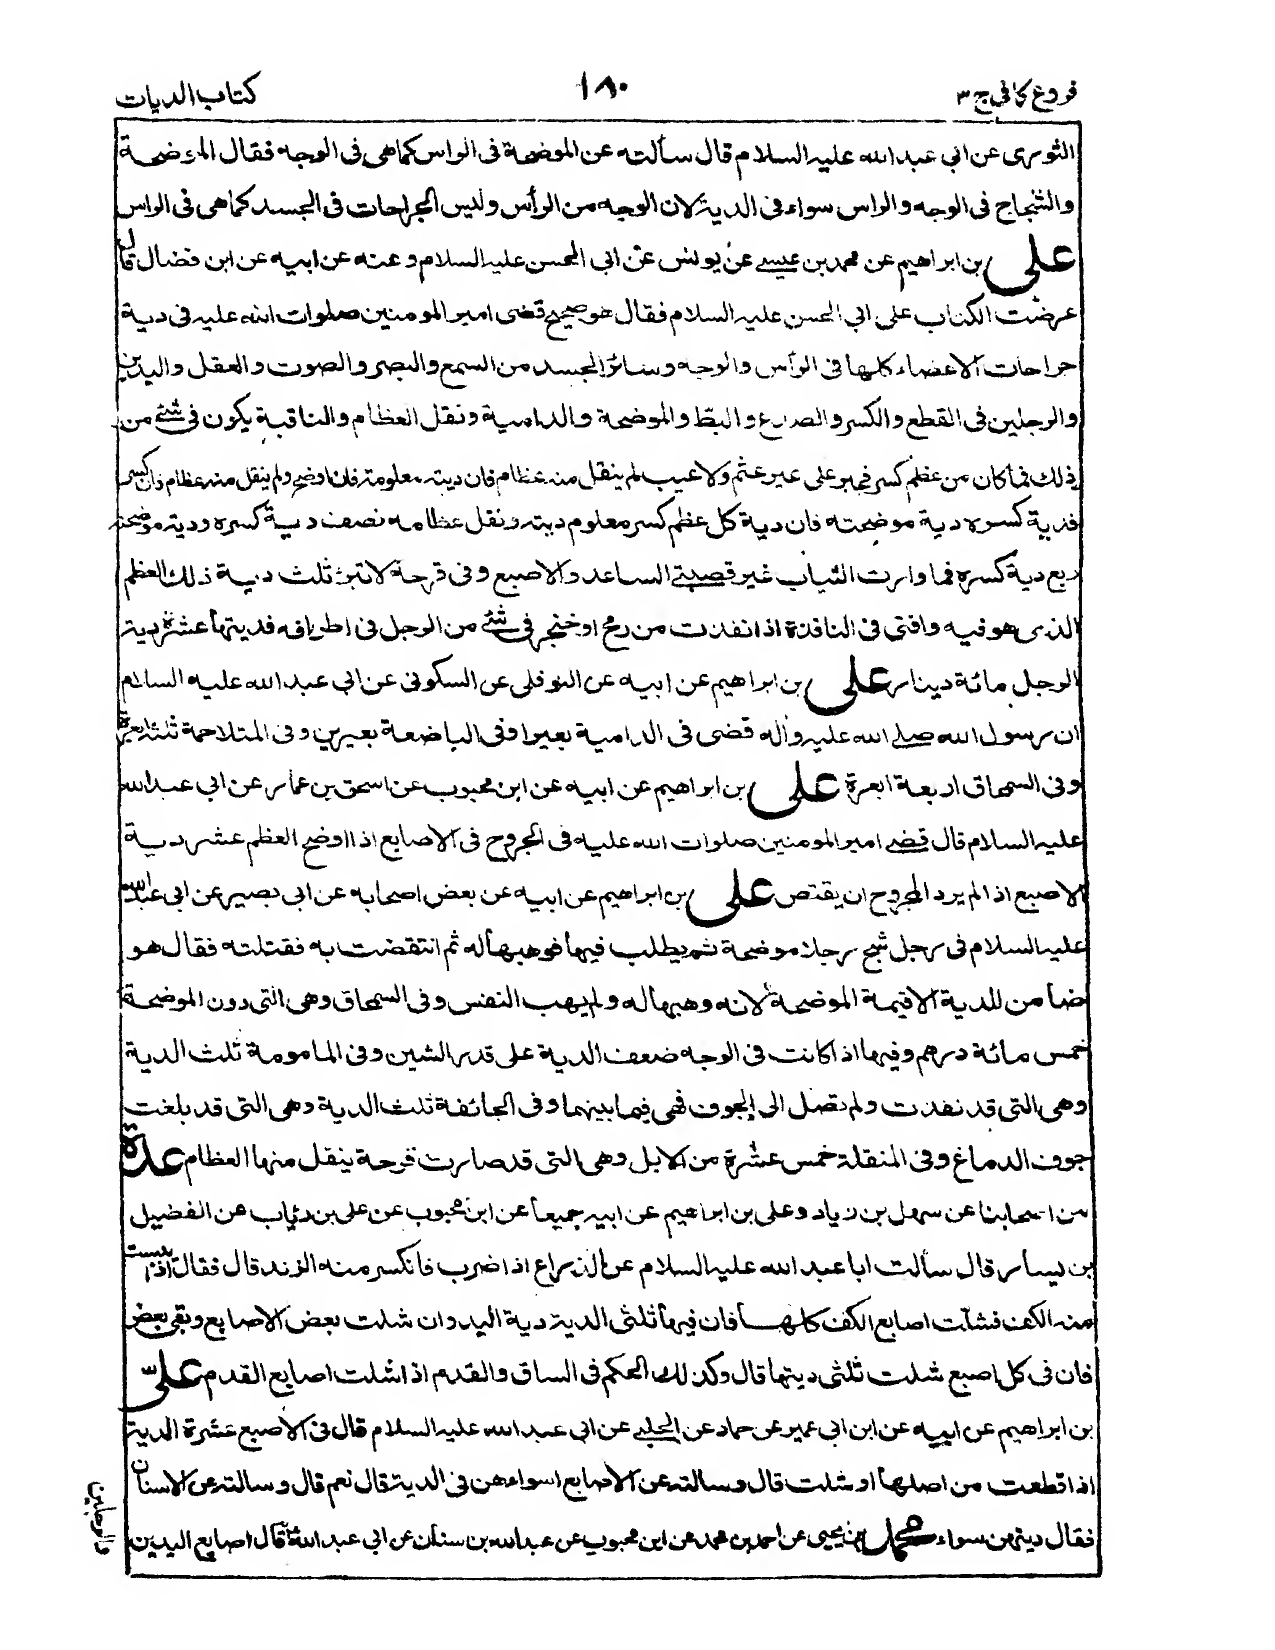 فروع كافى ج ٣
١٨٠
كتاب الديات
الثورى عن ابى عبد الله عليه السلام قال سألته عن الموضحة فى الراس كما هى فى الوجه فقال الموضحة
والشجاج فى الوجه والراس سواء فى الدية لان الوجه من الرأس وليس الجراحات فى الجسد كما هى فى الراس
على بن ابراهيم عن محمد بن عيسى عن يونس عن ابى الحسن عليه السلام وعنه عن ابيه عن ابن فضال قال
عرضت الكتاب على ابى الحسن عليه السلام فقال هو صحيح قضى امير المومنين صلوات الله عليه فى دية
جراحات الاعضاء كلها فى الرأس والوجه وسائر الجسد من السمع والبصر والصوت والعقل واليدين
والرجلين فى القطع والكسر والصدع والبط والموضحة والدامية ونقل العظام والناقبة يكون فى شئ من
ذلك فما كان من عظم كسر فجبر على غير عثم ولا عيب لم ينقل منه عظام فان ديته معلومة فان اوضح ولم ينقل منه عظام فان كسر
فدية كسره دية موضحته فان دية كل عظم كسر معلوم ديته ونقل عظامه نصف دية كسره ودية موضحته
ربع دية كسره فما وارت الثياب غير قصبتى الساعد والاصبع وفى قرحة لا تبرئ ثلث دية ذلك العظم
الذى هو فيه وافتى فى النافذة اذا نفذت من رمح او خنجر فى شئ من الرجل فى اطرافه فديتها عشر دية
الرجل مائة دينار على بن ابراهيم عن ابيه عن النوفلى عن السكونى عن ابى عبد الله عليه السلام
ان رسول الله صلى الله عليه وآله قضى فى الدامية بعيرا وفى الباضعة بعيرين وفى المتلاحمة ثلثة ابعرة
وفى السمحاق اربعة ابعرة على بن ابراهيم عن ابيه عن ابن محبوب عن اسحق بن عمار عن ابى عبد الله
عليه السلام قال قضى امير المومنين صلوات الله عليه فى الجروح فى الاصابع اذا اوضح العظم عشر دية
الاصبع اذا لم يرد المجروح ان يقتص على بن ابراهيم عن ابيه عن بعض اصحابه عن ابى بصير عن ابى عبد الله
عليه السلام فى رجل شج رجلا موضحة ثم يطلب فيها فوهبها له ثم انتقضت به فقتلته فقال هو
ضامن للدية الا قيمة الموضحة لانه وهبها له ولم يهب النفس وفى السمحاق وهى التى دون الموضحة
خمس مائة درهم وفيها اذا كانت فى الوجه ضعف الدية على قدر الشين وفى المامومة ثلث الدية
وهى التى قد نفذت ولم تصل الى الجوف فهى فيما بينهما وفى الجائفة ثلث الدية وهى التى قد بلغت
جوف الدماغ وفى المنقلة خمس عشرة من الابل وهى التى قد صارت قرحة ينقل منها العظام عدة
من اصحابنا عن سهل بن زياد وعلى بن ابراهيم عن ابيه جميعا عن ابن محبوب عن على بن رئاب عن الفضيل
بن يسار قال سألت ابا عبد الله عليه السلام عن الذراع اذا ضرب فانكسر منه الزند قال فقال اذا يبست
منه الكف فشلت اصابع الكف كلها فان فيها ثلثى الدية دية اليد وان شلت بعض الاصابع وبقى بعض
فان فى كل اصبع شلت ثلثى ديتها قال وكذلك الحكم فى الساق والقدم اذا اشلت اصابع القدم على
بن ابراهيم عن ابيه عن ابن ابى عمير عن حماد عن الحلبى عن ابى عبد الله عليه السلام قال فى الاصبع عشرة الدية
اذا قطعت من اصلها او شلت قال وسالته عن الاصابع اسواء هن فى الدية قال نعم قال وسالته عن الاسنان
فقال ديتهن سواء محمد بن يحيى عن احمد بن محمد عن ابن محبوب عن عبد الله بن سنان عن ابى عبد الله قال اصابع اليدين
والرجلين